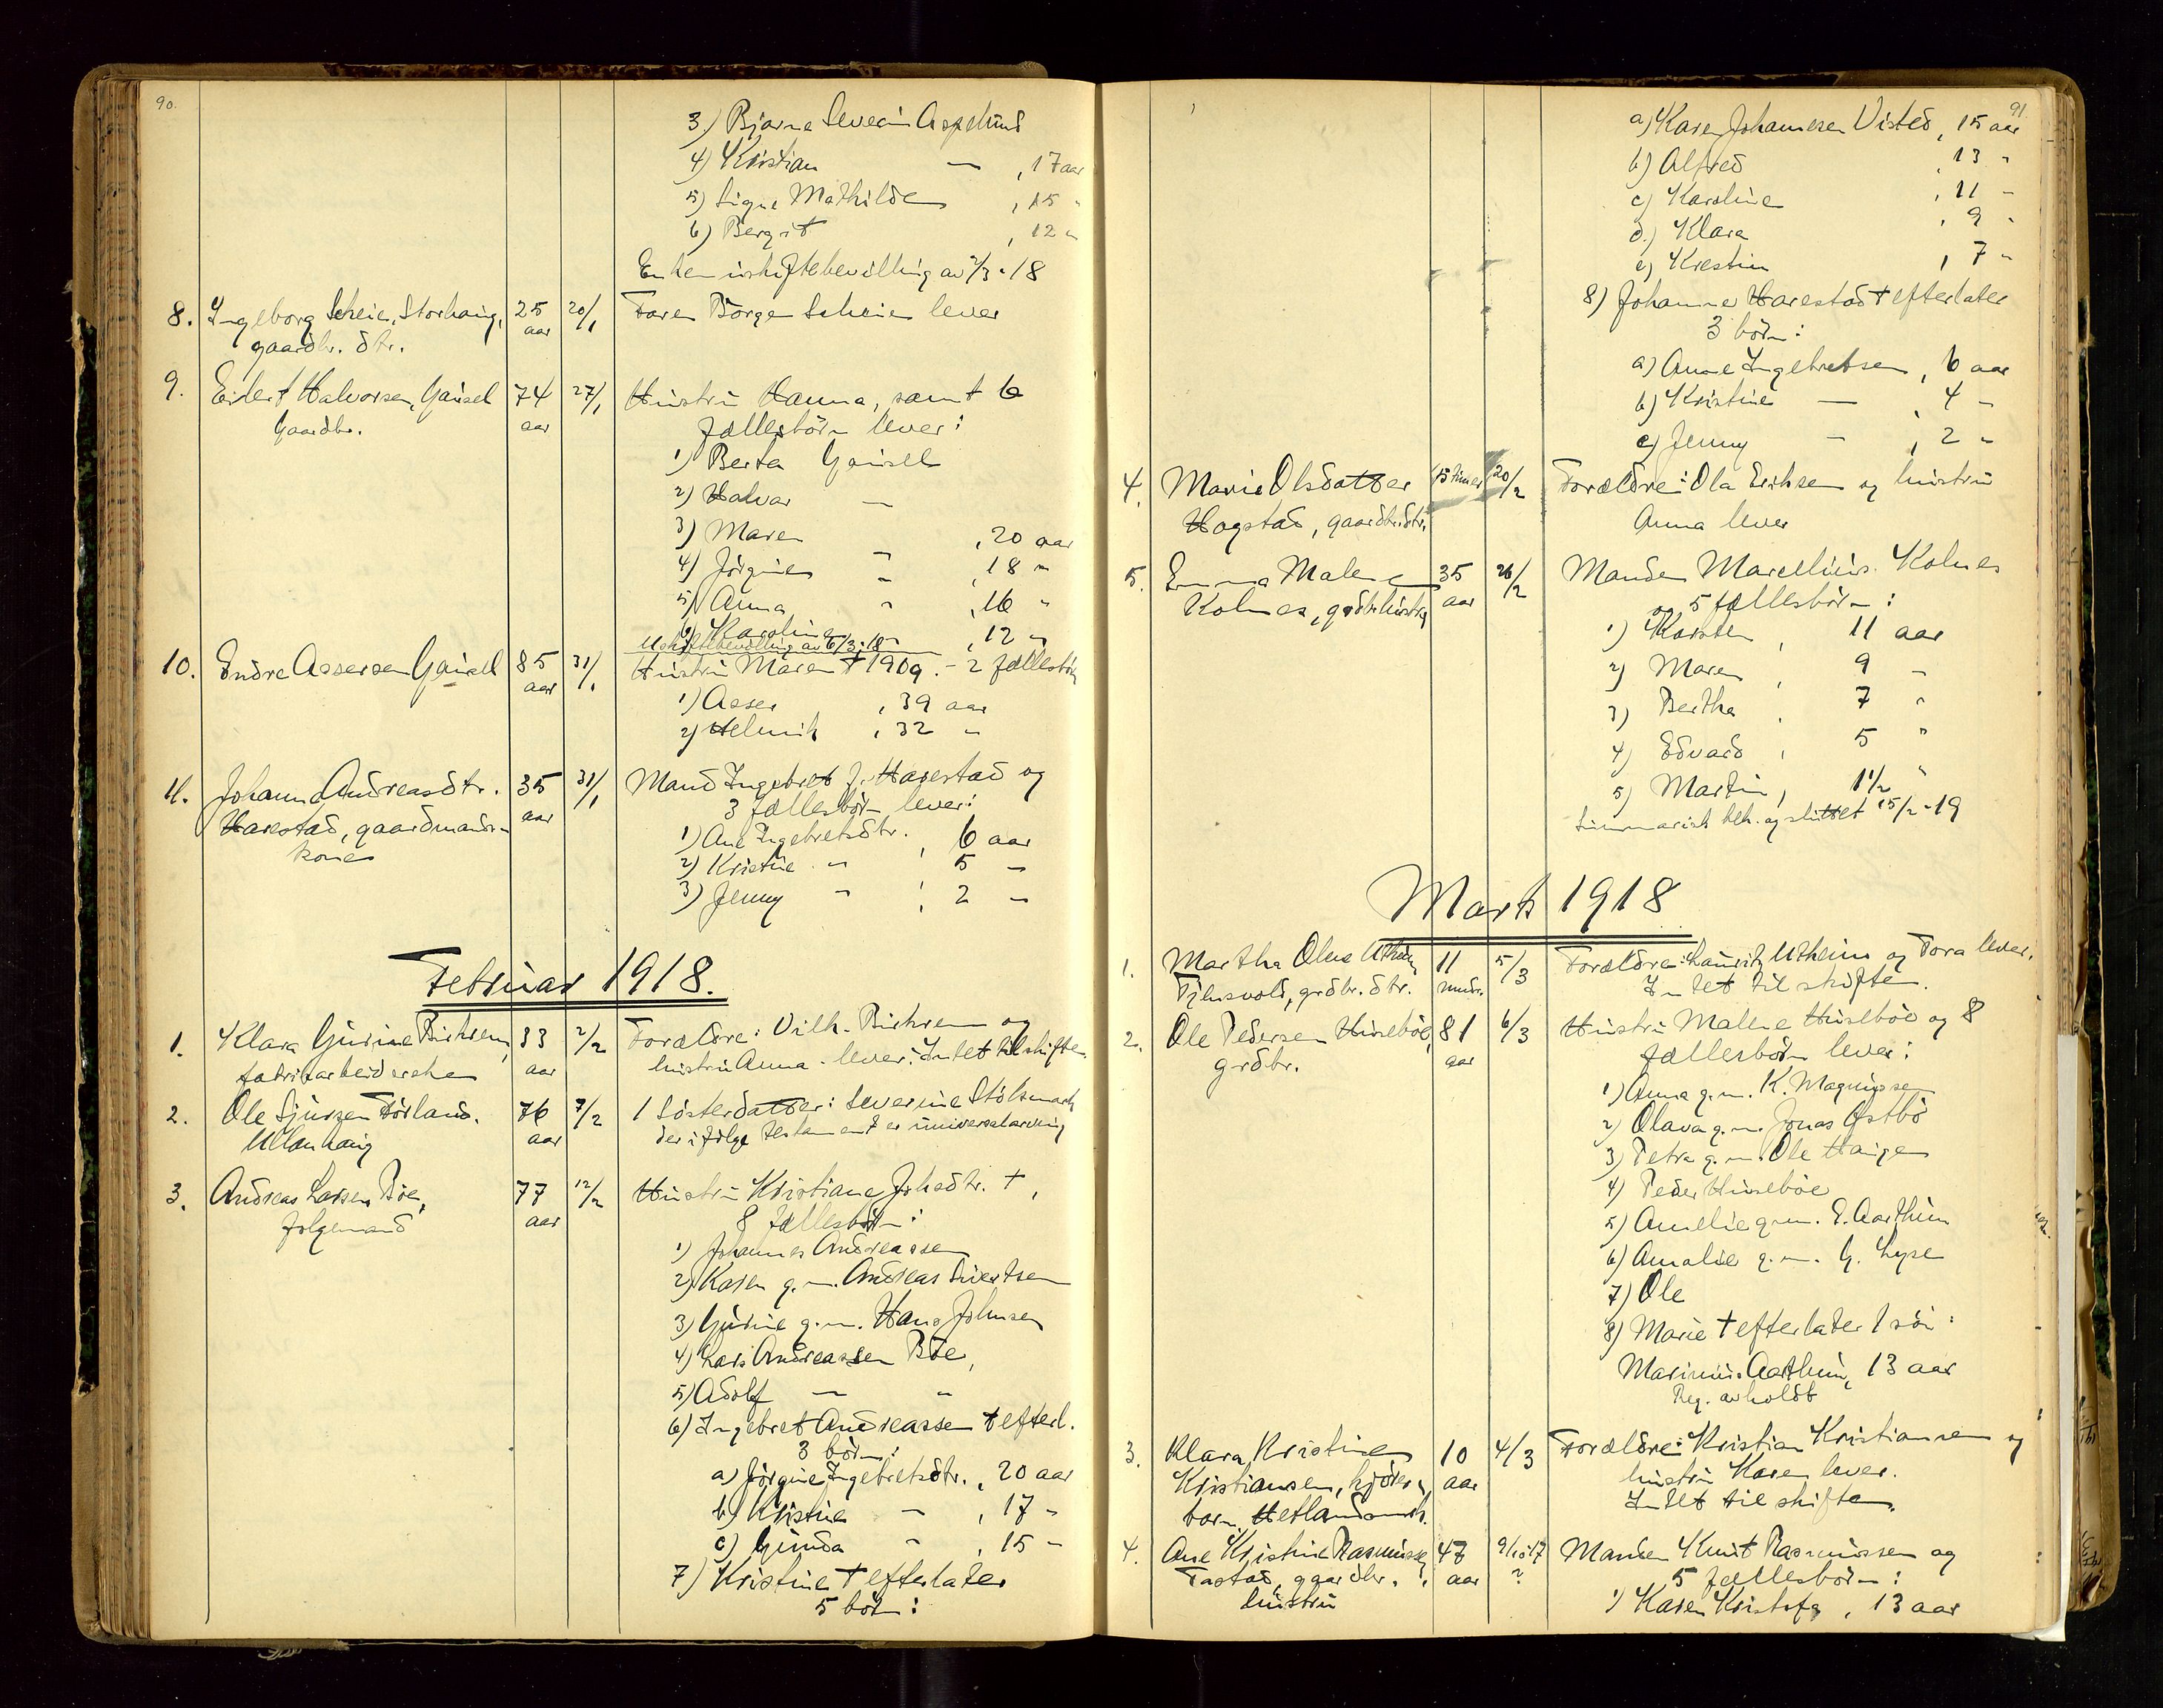 90.
3) Bjarne Severin Aspelund
4) Kristian — , 17 aar
5) Signe Mathilde , 15 "
6) Bergit , 12 "
Enken uskiftebevilling av 2/3-18
8. Ingeborg Scheie, Storhaug, 25 20/1 Faren Börge Scheie lever
gaardbr. dtr. aar
9. Eilert Halvorsen, Gausel 74 27/1 Hustru Hanna, samt 6
Gaardbr. aar fællesbörn lever:
1) Berta Gausel
2) Halvar —
3) Maren , 20 aar
4) Jörgine " , 18 "
5) Anna " , 16 "
6) Karoline " , 12 "
Uskiftebevilling av 6/3-18
10. Endre Assersen Gausel 85 31/1 Hustru Maren † 1909. - 2 fællesbörn
aar
1) Asser , 39 aar
2) Helmik , 32 "
11. Johanne Andreasdtr. 35 31/1 Mand Ingebret J. Harestad og
Harestad, gaardmands- aar 3 fællesbörn lever:
kone
1) Ane Ingebretsdtr. , 6 aar
2) Kristine " , 5 "
3) Jenny " , 2 "
Februar 1918.
1. Klara Gurine Birksen, 33 2/2 Forældre: Vilh. Birksen og
fabrikarbeiderske aar hustru Anna lever. Intet til skifte.
2. Ole Sjursen Förland. 76 7/2 1 Sösterdatter: Severine Stölsmark
Ullenhaug aar der ifölge testament er universalarving
3. Andreas Larsen Böe, 77 12/2 Hustru Kristiane Johsdtr. †,
folgemand aar 8 fællesbörn:
1) Johannes Andreassen
2) Karen g.m. Andreas Sivertsen
3) Gurine g.m. Hans Johnsen
4) Lars Andreassen Böe,
5) Adolf — "
6) Ingebret Andreassen † efterl.
3 börn:
a) Jörgine Ingebretsdtr. , 20 aar
b) Kristine " , 17 "
c) Gunda " , 15 "
7) Kristine † efterlater
5 börn:
91.
a) Karen Johannesen Visted, 15 aar
b) Alfred , 13 "
c) Karoline , 11 "
d.) Klara , 9 "
e) Kristin , 7 "
8) Johanne Harestad † efterlater
3 börn:
a) Anne Ingebretsen , 6 aar
b) Kristine — , 4 "
c) Jenny — , 2 "
4. Marie Olsdatter 15 timer 20/2 Forældre: Ola Eriksen og hustru
Hogstad, gaardbr.dtr. Anna lever
5. Emma Malene 35 26/2 Manden Marcelius Kolnes
Kolnes, grdbr.hustru aar og 5 fællesbörn:
1) Karsten , 11 aar
2) Maren , 9 "
3) Bertha , 7 "
4) Edvard , 5 "
5) Martin , 1 1/2 "
Summarisk beh. og sluttet 15/2-19
Marts 1918
1. Martha Oline Utheim 11 5/3 Forældre: Lauritz Utheim og Tora lever.
Tjensvold, grdbr. dtr. mndr. Intet til skifte.
2. Ole Pedersen Huseböe, 81 6/3 Hustru Malene Huseböe og 8
grdbr. aar fællesbörn lever:
1) Anna g.m. K. Magnussen
2) Olava g.m. Jonas Østbö
3) Petra g.m. Ole Haugen
4) Peder Huseböe
5) Amelie g.m. E. Aarthun
6) Amalie g.m. G. Lyse
7) Ole
8) Marie † efterlater 1 sön:
Marinius Aarthun, 13 aar
Reg. avholdt
3. Klara Kristine 10 4/3 Forældre: Kristian Kristiansen og
Kristiansen, aar hustru Karen lever.
barn, Hetlandsmk. Intet til skifte.
4. Ane Kristine Rasmussen 47 Manden Knut Rasmussen og
Tastad, gaardbr. aar ? 5 fællesbörn:
hustru 1) Karen Kristofa , 13 aar